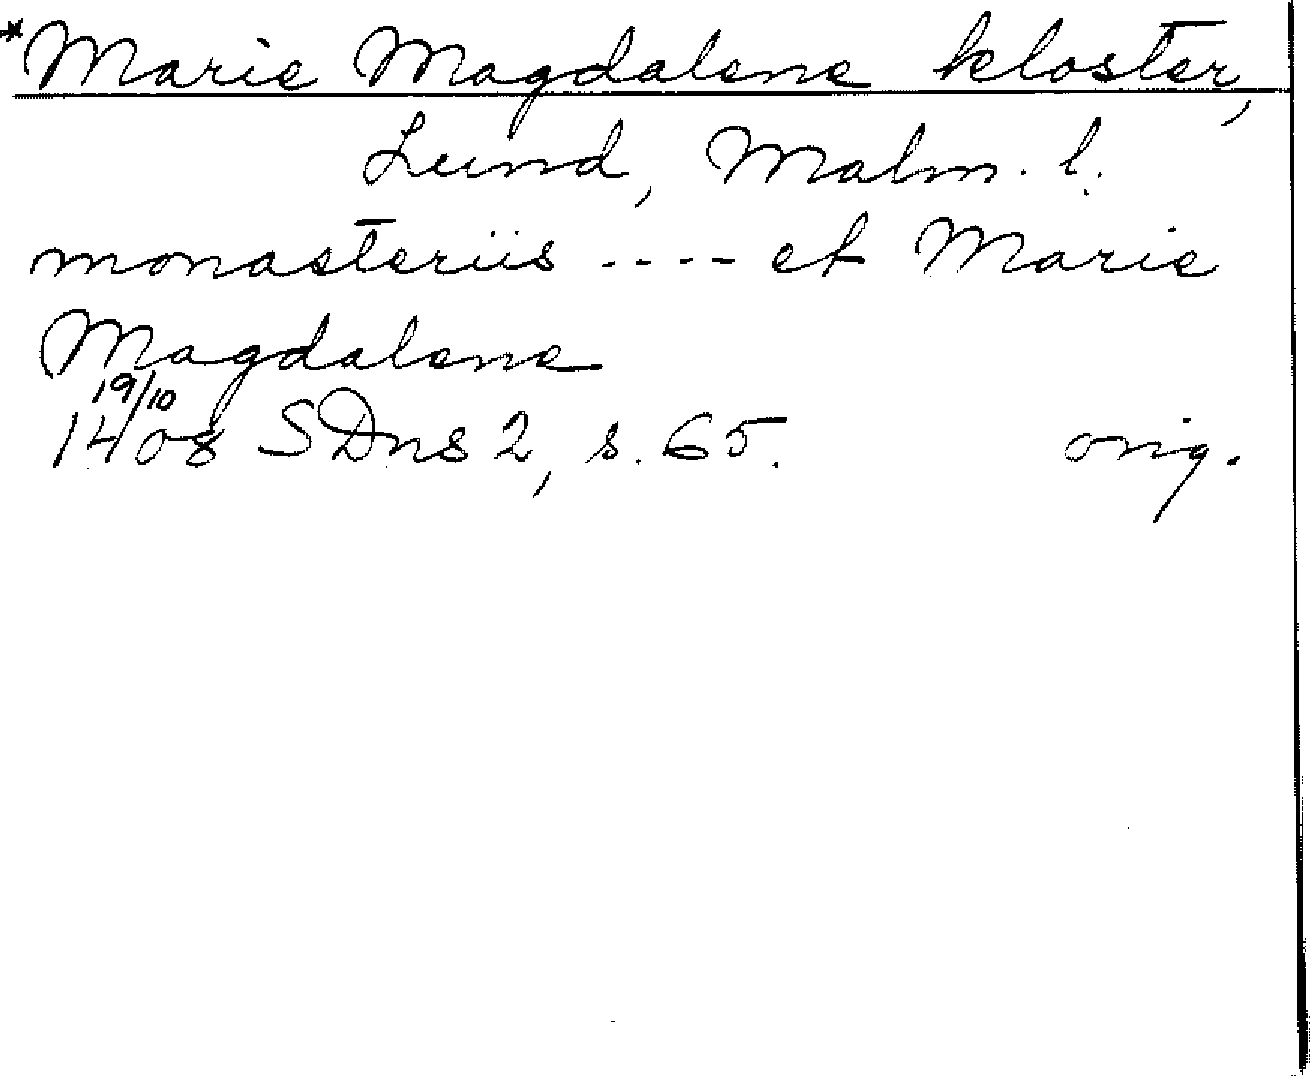 *Marie Magdalene kloster,
Lund, Malm. l.
monasteriis ---- et Marie
Magdalene
19/10
1408 SDns 2, s. 65. orig.